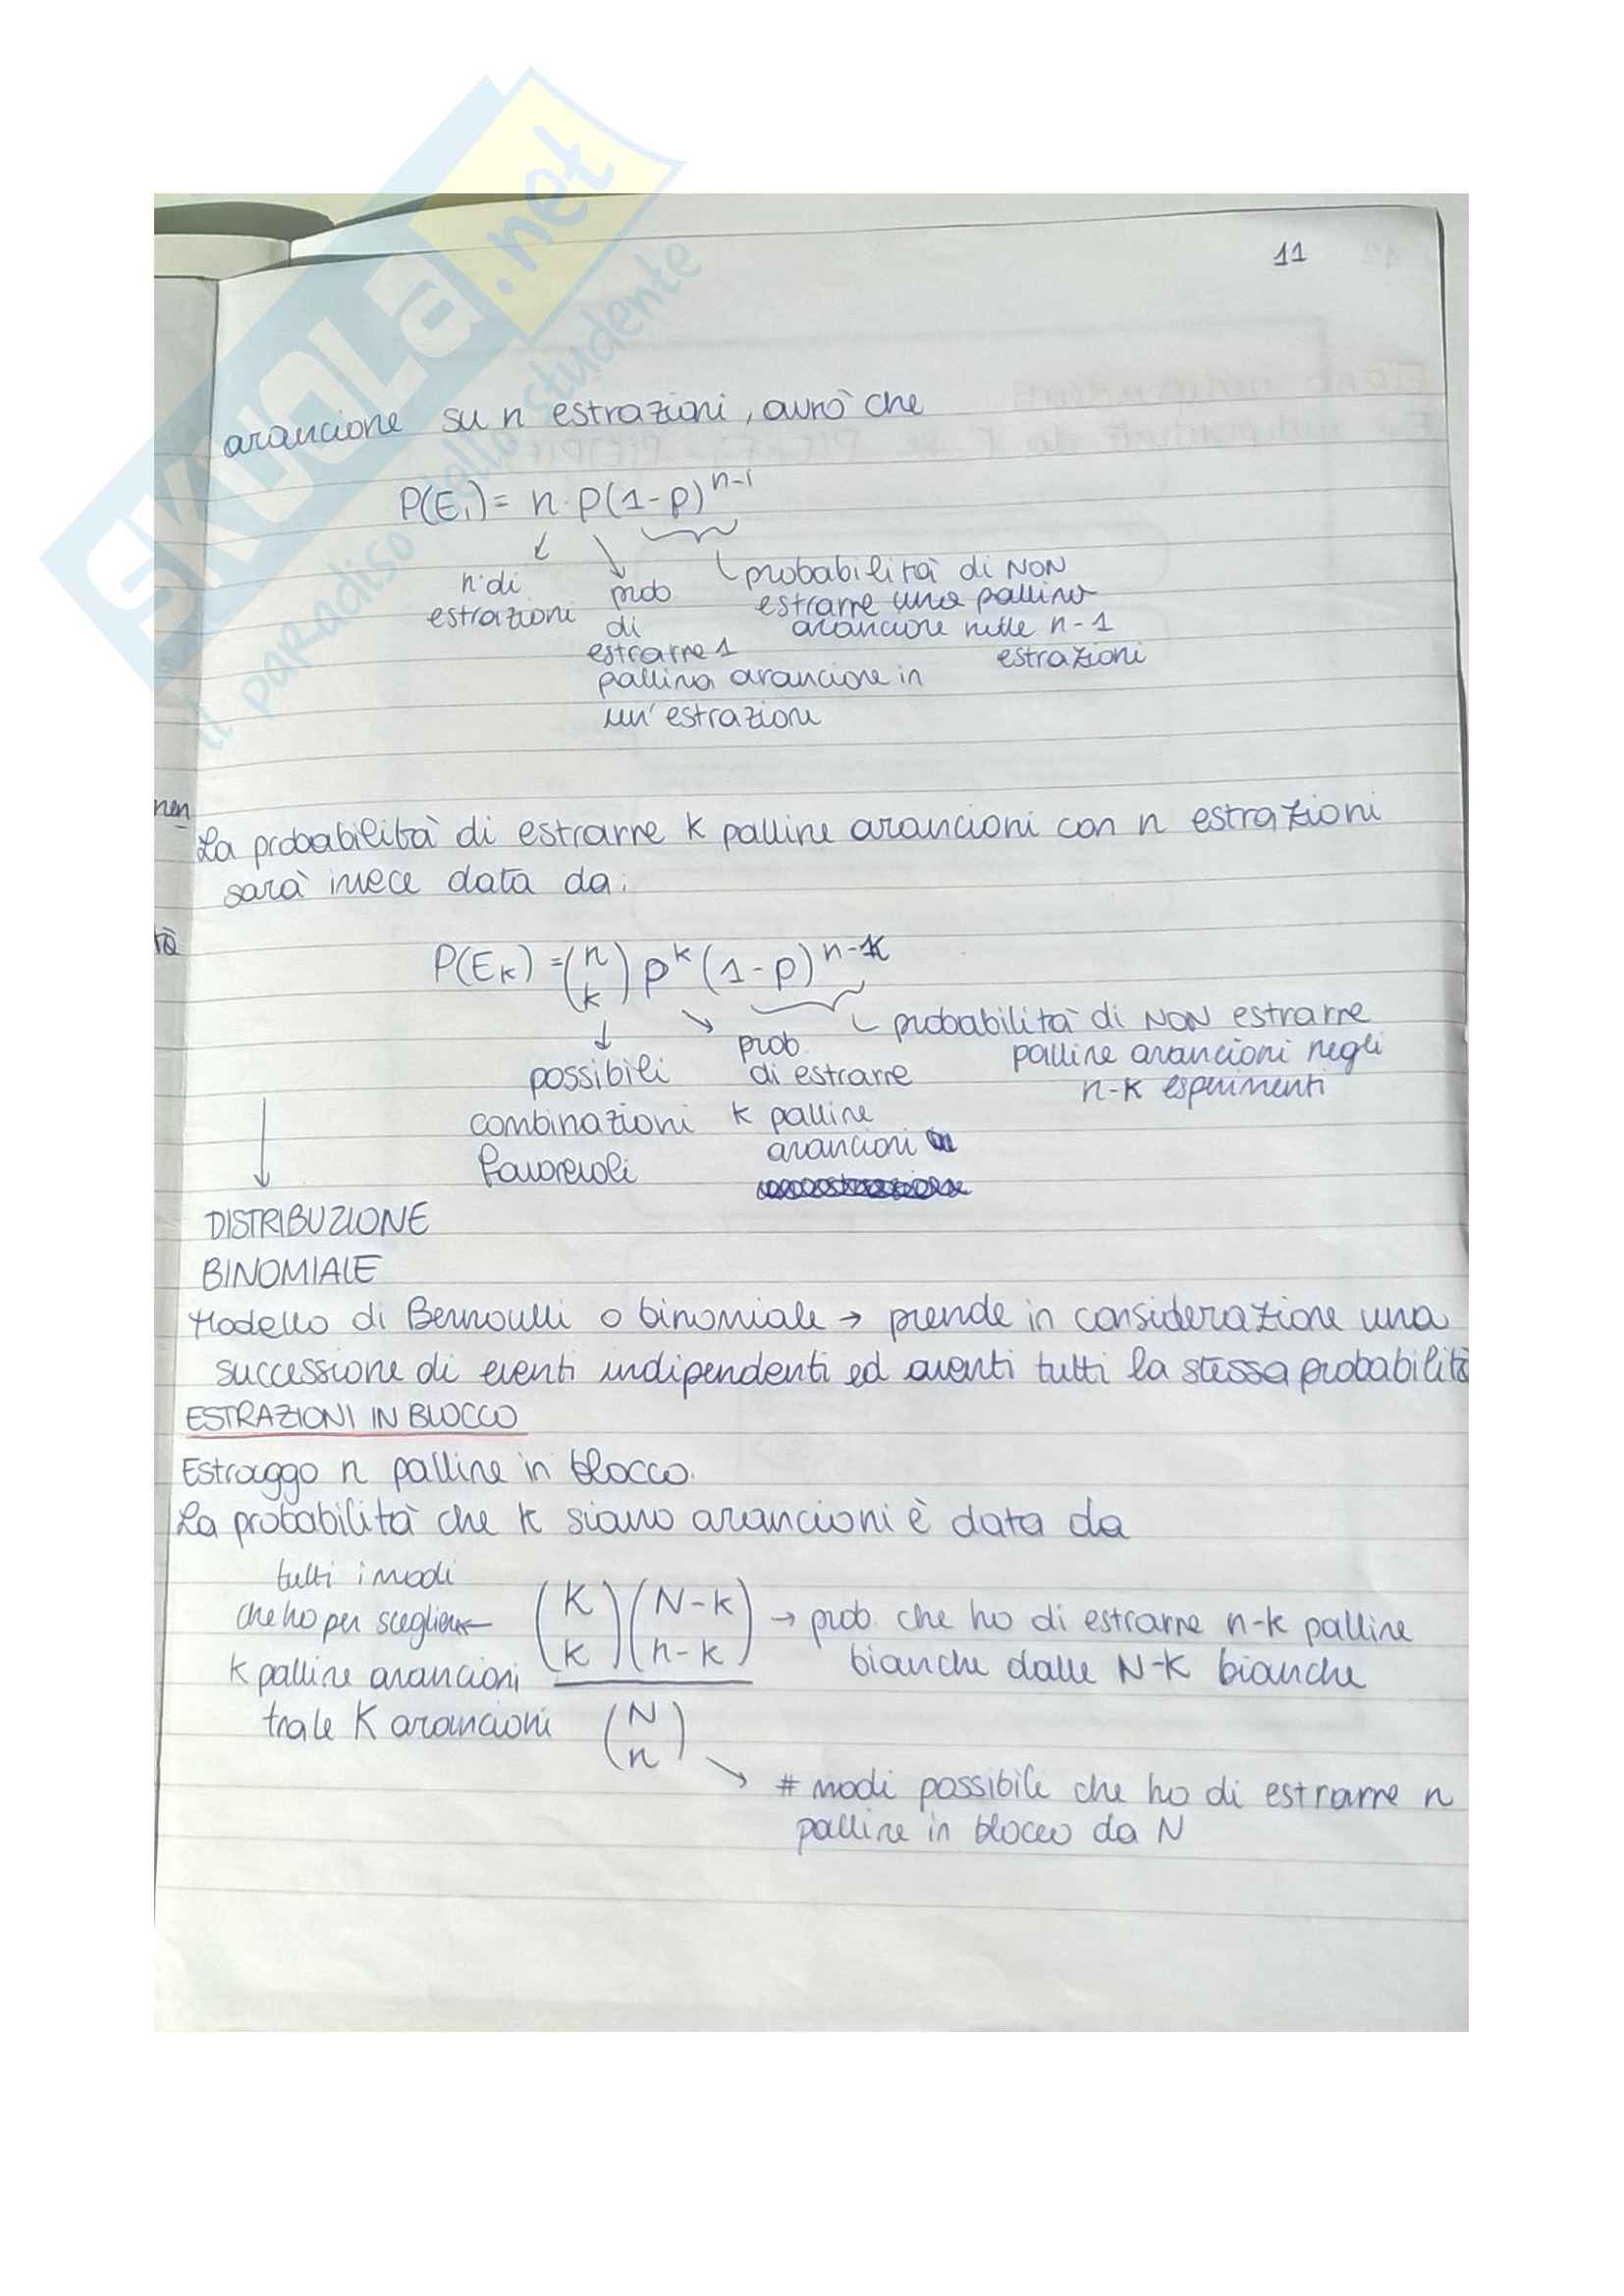 SKUOLA.net
il paradiso dello studente
11
arancione su n estrazioni, avrò che
P(E₁) = n · p(1-p)ⁿ⁻¹
n° di
estrazioni
prob
di
estrarre 1
pallina arancione in
un'estrazione
probabilità di NON
estrarre una pallina
arancione nelle n-1
estrazioni
nen
La probabilità di estrarre k palline arancioni con n estrazioni
sarà invece data da:
tà
P(Eₖ) = (n k) pᵏ (1-p)ⁿ⁻ᵏ
possibili
combinazioni
favorevoli
prob
di estrarre
k palline
arancioni
probabilità di NON estrarre
palline arancioni negli
n-k esperimenti
DISTRIBUZIONE
BINOMIALE
Modello di Bernoulli o binomiale → prende in considerazione una
successione di eventi indipendenti ed aventi tutti la stessa probabilità
ESTRAZIONI IN BLOCCO
Estraggo n palline in blocco.
La probabilità che k siano arancioni è data da
tutti i modi
che ho per scegliere ←
k palline arancioni
tra le K arancioni
(K k) (N-k n-k)
(N n)
→ prob. che ho di estrarre n-k palline
bianche dalle N-K bianche
# modi possibile che ho di estrarre n
palline in blocco da N